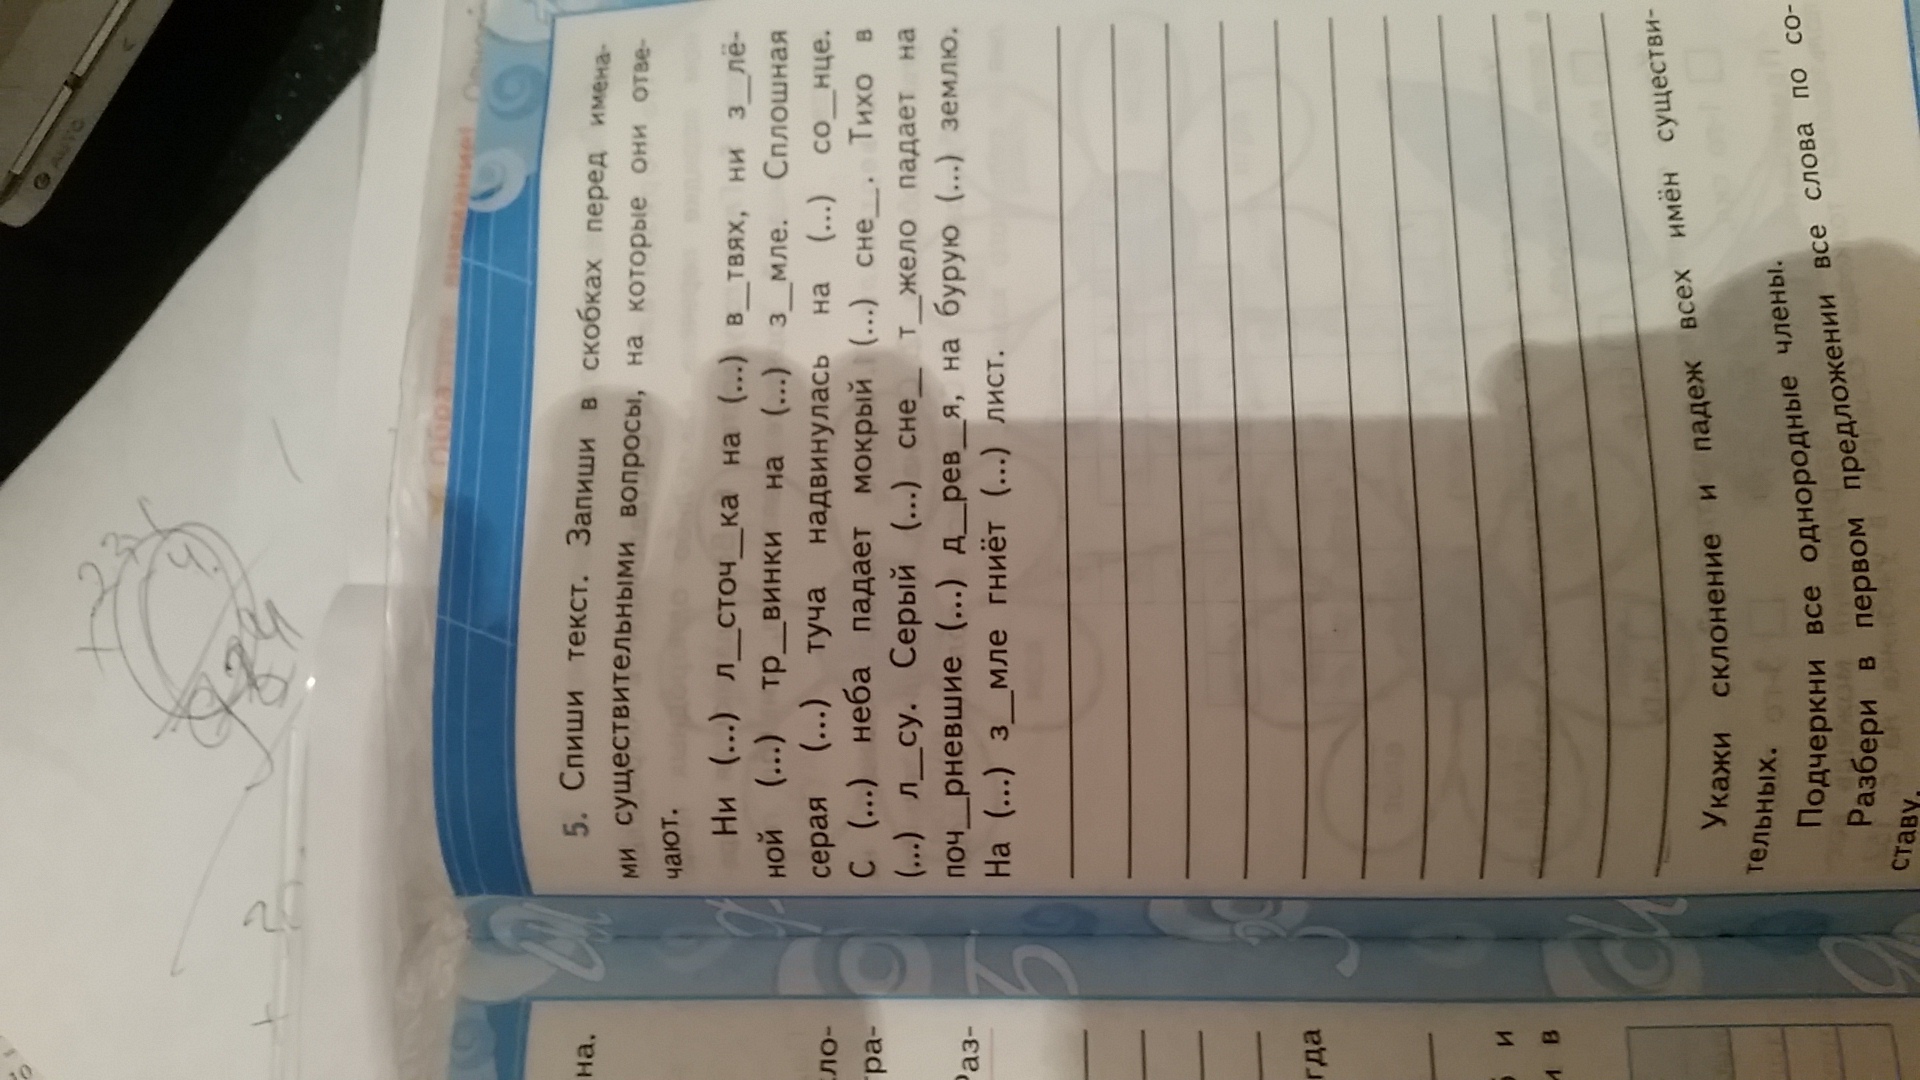 5. Спиши текст. Запиши в скобках перед имена-
ми существительными вопросы, на которые они отве-
чают.
Ни (...) л_сточ_ка на (...) в_твях, ни з_лё-
ной (...) тр_винки на (...) з_мле. Сплошная
серая (...) туча надвинулась на (...) со_нце.
С (...) неба падает мокрый (...) сне_. Тихо в
(...) л_су. Серый (...) сне_ т_жело падает на
поч_рневшие (...) д_рев_я, на бурую (...) землю.
На (...) з_мле гниёт (...) лист.
Укажи склонение и падеж всех имён существи-
тельных.
Подчеркни все однородные члены.
Разбери в первом предложении все слова по со-
ставу.
на.
ло-
гра-
Раз-
гда
и
в